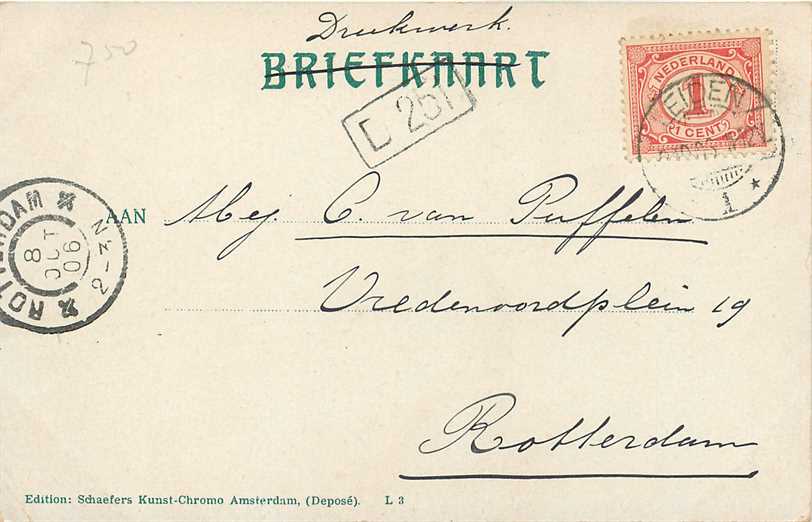 750
Drukwerk.
BRIEFKAART
L 251
NEDERLAND
1
1 CENT
1
AAN Mej. C. van Puffelen
Vredenoordplein 19
Rotterdam
ROTTERDAM
8 OCT 06
2-3 N
Edition: Schaefers Kunst-Chromo Amsterdam, (Deposé). L 3